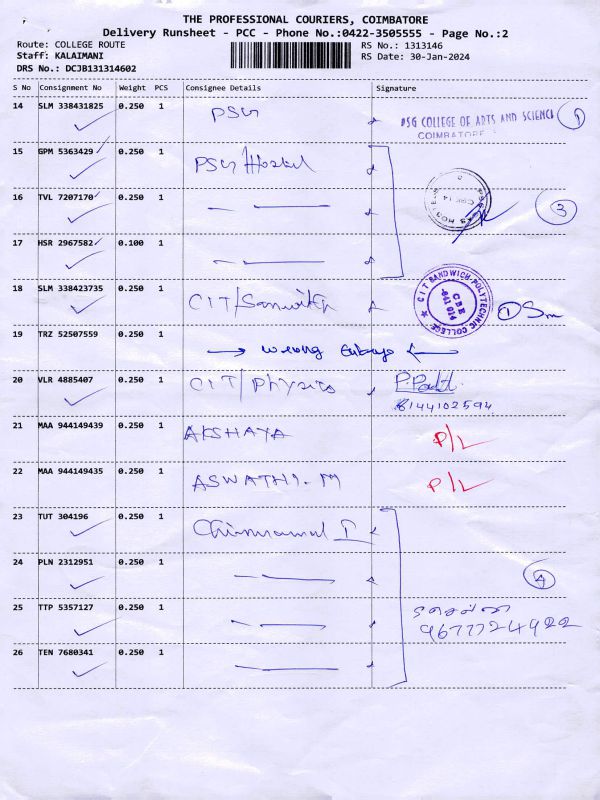 THE PROFESSIONAL COURIERS, COIMBATORE
Delivery Runsheet - PCC - Phone No.:0422-3505555 - Page No.:2
Route: COLLEGE ROUTE RS No.: 1313146
Staff: KALAIMANI RS Date: 30-Jan-2024
DRS No.: DCJB131314602
S No Consignment No Weight PCS Consignee Details Signature
14 SLM 338431825 0.250 1 PSG PSG COLLEGE OF ARTS AND SCIENCE 1
COIMBATORE
15 GPM 5363429 0.250 1 PSG Hostel
16 TVL 7207170 0.250 1 — — 3
17 HSR 2967582 0.100 1 — —
18 SLM 338423735 0.250 1 CIT/Sanwith CIT SANDWICH POLYTECHNIC COLLEGE CBE -641 014 1
19 TRZ 52507559 0.250 1
wrong Entry
20 VLR 4885407 0.250 1 CIT/Physics
8144102594
21 MAA 944149439 0.250 1 AKSHAYA P/L
22 MAA 944149435 0.250 1 ASWATHI. M P/L
23 TUT 304196 0.250 1
24 PLN 2312951 0.250 1 — — 4
25 TTP 5357127 0.250 1 — —
9677724922
26 TEN 7680341 0.250 1 — —